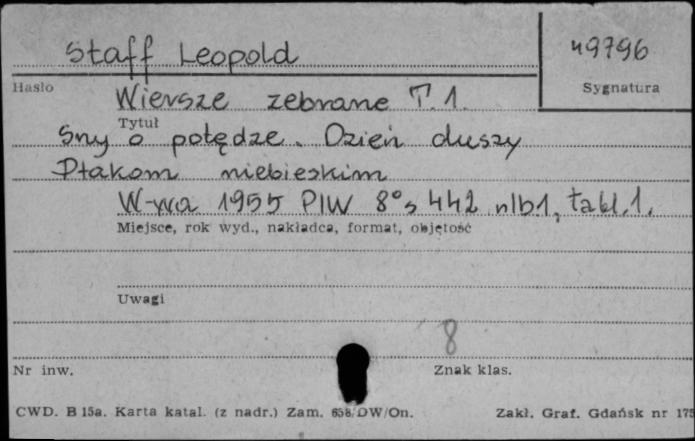 Staff Leopold
49796
Hasło
Sygnatura
Wiersze zebrane T. 1.
Tytuł
Sny o potędze. Dzień duszy
Ptakom niebieskim
W-wa 1955 PIW 8° s 442 nlb 1, tabl. 1.
Miejsce, rok wyd., nakładca, format, objętość
Uwagi
8
Nr inw.
Znak klas.
CWD. B 15a. Karta katal. (z nadr.) Zam. 658/DW/On.
Zakł. Graf. Gdańsk nr 175